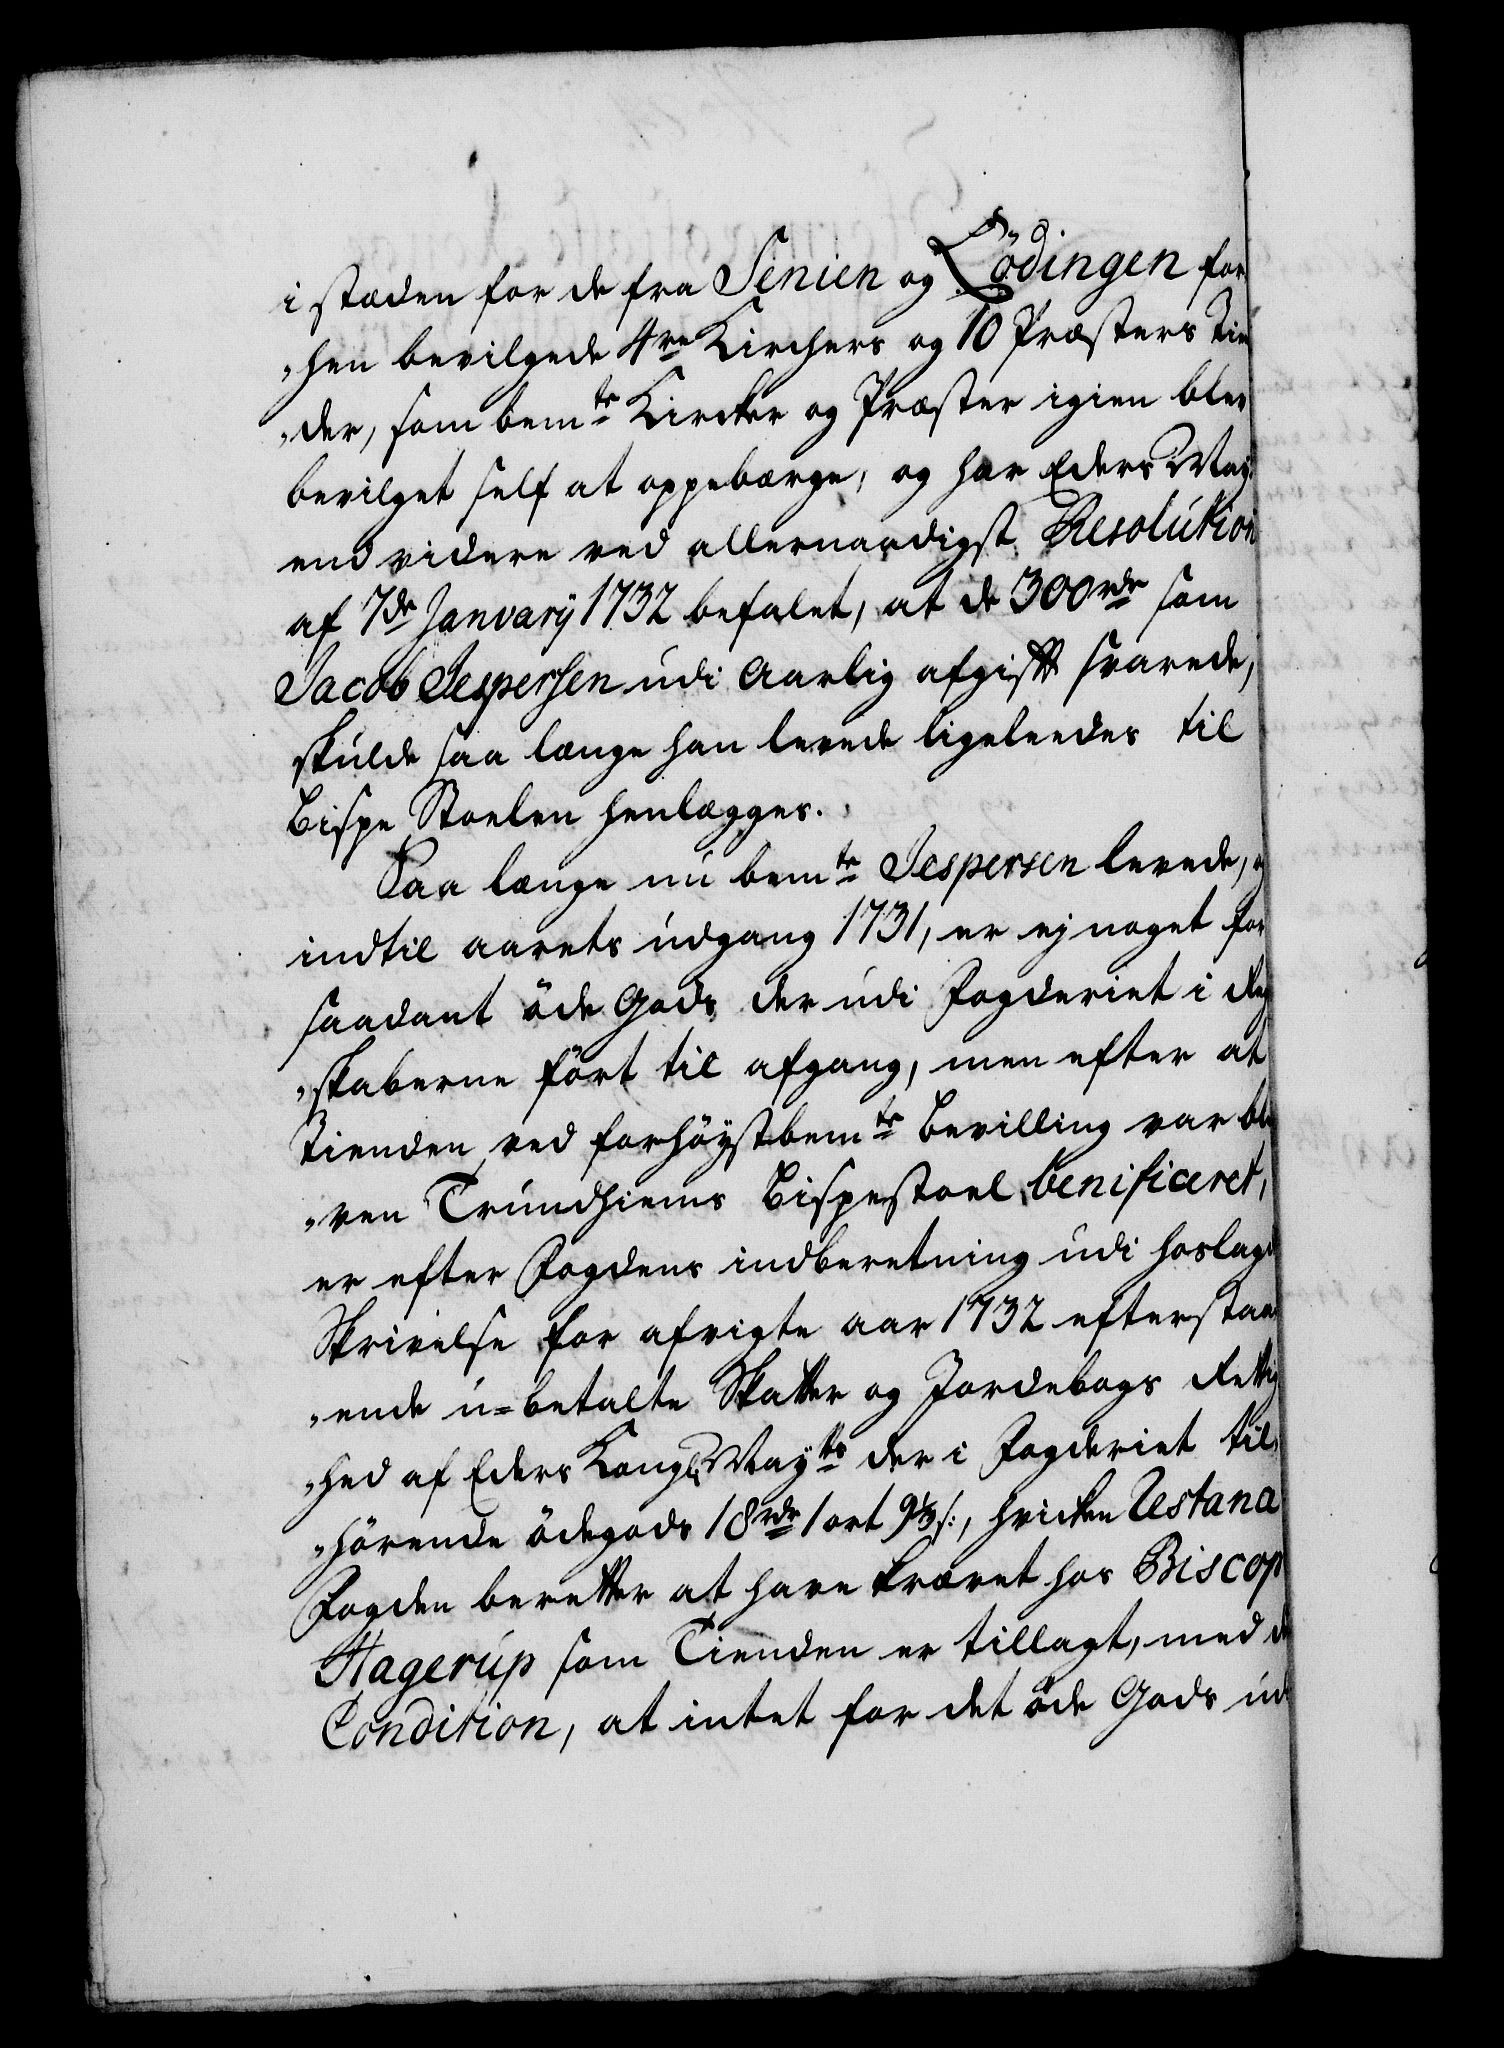 i stæden for de fra Senien og Lödingen for
„hen bevilgede 4re Kirchers og 10 Præsters Tie
„der, som bemte Kircker og Præster igien blev
bevilget self at oppebærge, og har Eders May:
end videre ved allernaadigst Resolution
af 7de January 1732 befalet, at de 300 rdr som
Jacob Jespersen udi Aarlig afgift svarede,
skulde saa længe han levede ligeleedes til
Bispe Stoelen henlægges.
Saa længe nu bemte Jespersen levede, og
indtil aarets udgang 1731, er ej noget for
saadant öde Gods der udi Fogderiet i Reg
„skaberne fört til afgang, men efter at
Tienden ved forhöystbemte Bevilling var ble
„ven Trundhiems Bispestoel benificeret,
er efter Fogdens indberetning udi hoslagde
Skrivelse for afvigte aar 1732 efterstaa
„ende u=betalte Skatter og Jordebogs Rettig
„hed af Eders Kongl: Mayts der i Fogderiet til
„hörende ödegods 18 rdr 1 ort 9⅓ s:, hvicken Restance
Fogden beretter at have kræret hos Biscop
Hagerup som Tienden er tillagt, med de
Condition, at intet for det öde Gods ud